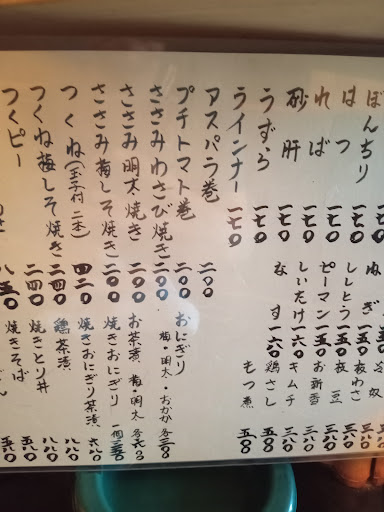 ぼんちり 一七〇
はつ 一七〇
ればー 一七〇
砂肝 一七〇
うずら 一七〇
ウインナー 一七〇
アスパラ巻 二〇〇
プチトマト巻 二〇〇
ささみわさび焼き 二〇〇
ささみ明太焼き 二〇〇
ささみ梅しそ焼き 二〇〇
つくね(玉子付 二本) 四二〇
つくね梅しそ焼き 二四〇
つくピー 二四〇
八五〇
ぬぎ
ししとう 一五〇
ピーマン 一五〇
しいたけ 一六〇
なす 一六〇
おにぎり 梅・明太・おかか 各二三〇
お茶漬 梅・明太 各六三〇
焼きおにぎり 一個 三五〇
焼きおにぎり茶漬 六八〇
鶏茶漬 八八〇
焼きとり丼 八八〇
焼きそば 五八〇
冷奴
板わさ 三八〇
枝豆 三八〇
お新香 三八〇
キムチ 三八〇
鶏さし 五八〇
もつ煮 五〇〇